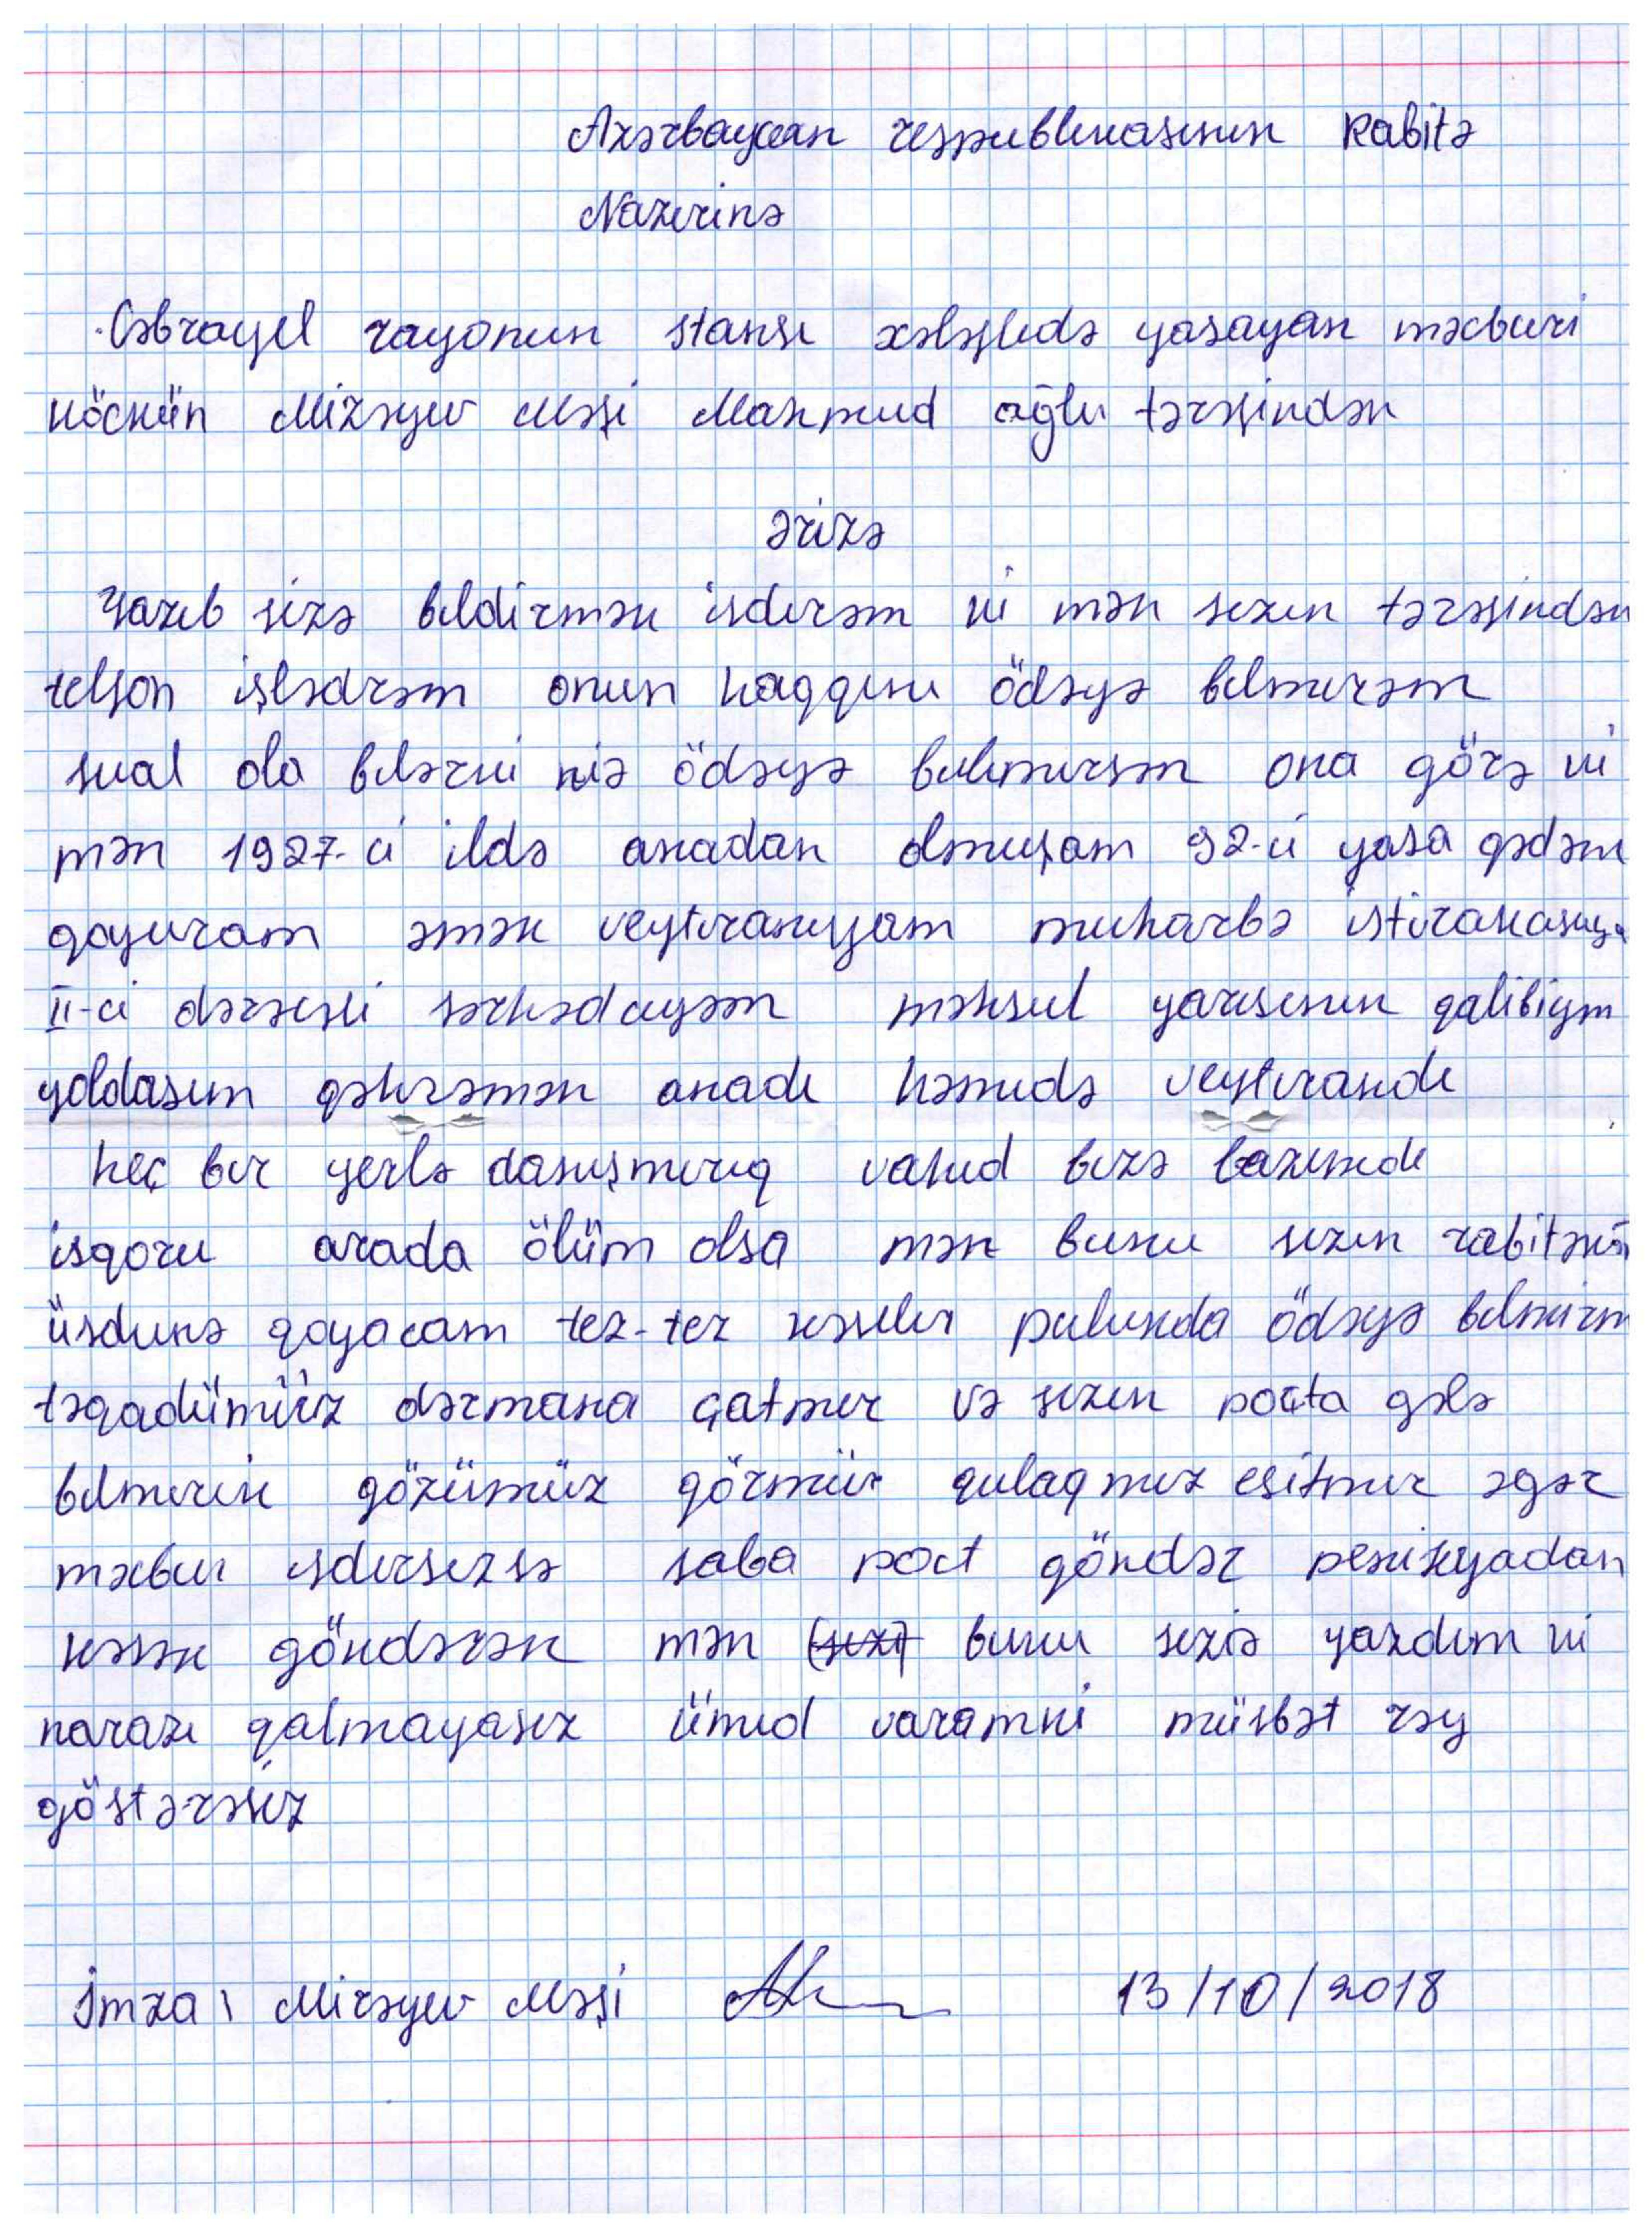 Azərbaycan respublikasının Rabitə
Nazirinə
Cəbrayıl rayonun stansı xələflidə yasayan məcburi
köckün Mirəyev Məşi Mahmud oğlu tərəfindən
ərizə
Yazıb sizə bildirmək isdirəm ki mən sizin tərəfindən
telfon işlədrəm onun haqqını ödəyə bilmirəm
sual ola bilərki niə ödəyə bilimirsən ona görə ki
mən 1927-ci ildə anadan olmuşam 92-ci yasa qədəm
qoyuram əmək veytıranıyam muharbə
II-ci dərəcəli məhsul yarısının qalibiyəm
yoldasım qəhrəmən anadı həmidə veytırandı
heç bir yerlə danışmırıq vahid bizə lazımdı
isqoru arada ölüm olsa mən bunu sizin
üsdunə qoyacam tez-tez kəsilir pulunda ödəyə bilmirəm
təqadümüüz dərmana çatmır və sizin poçta gələ
bilmirik gözümüz görmür qulaqmız esitmir əgər
məcbur isdirsizsə saba poct göndər pensiyadan
kəsək göndərək mən (sizi) bunu siziə yazdım ki
narazı qalmayasız ümid varamki müsbət rəy
göstərəsiz
İmza: Mirəyev Məşi 13/10/2018